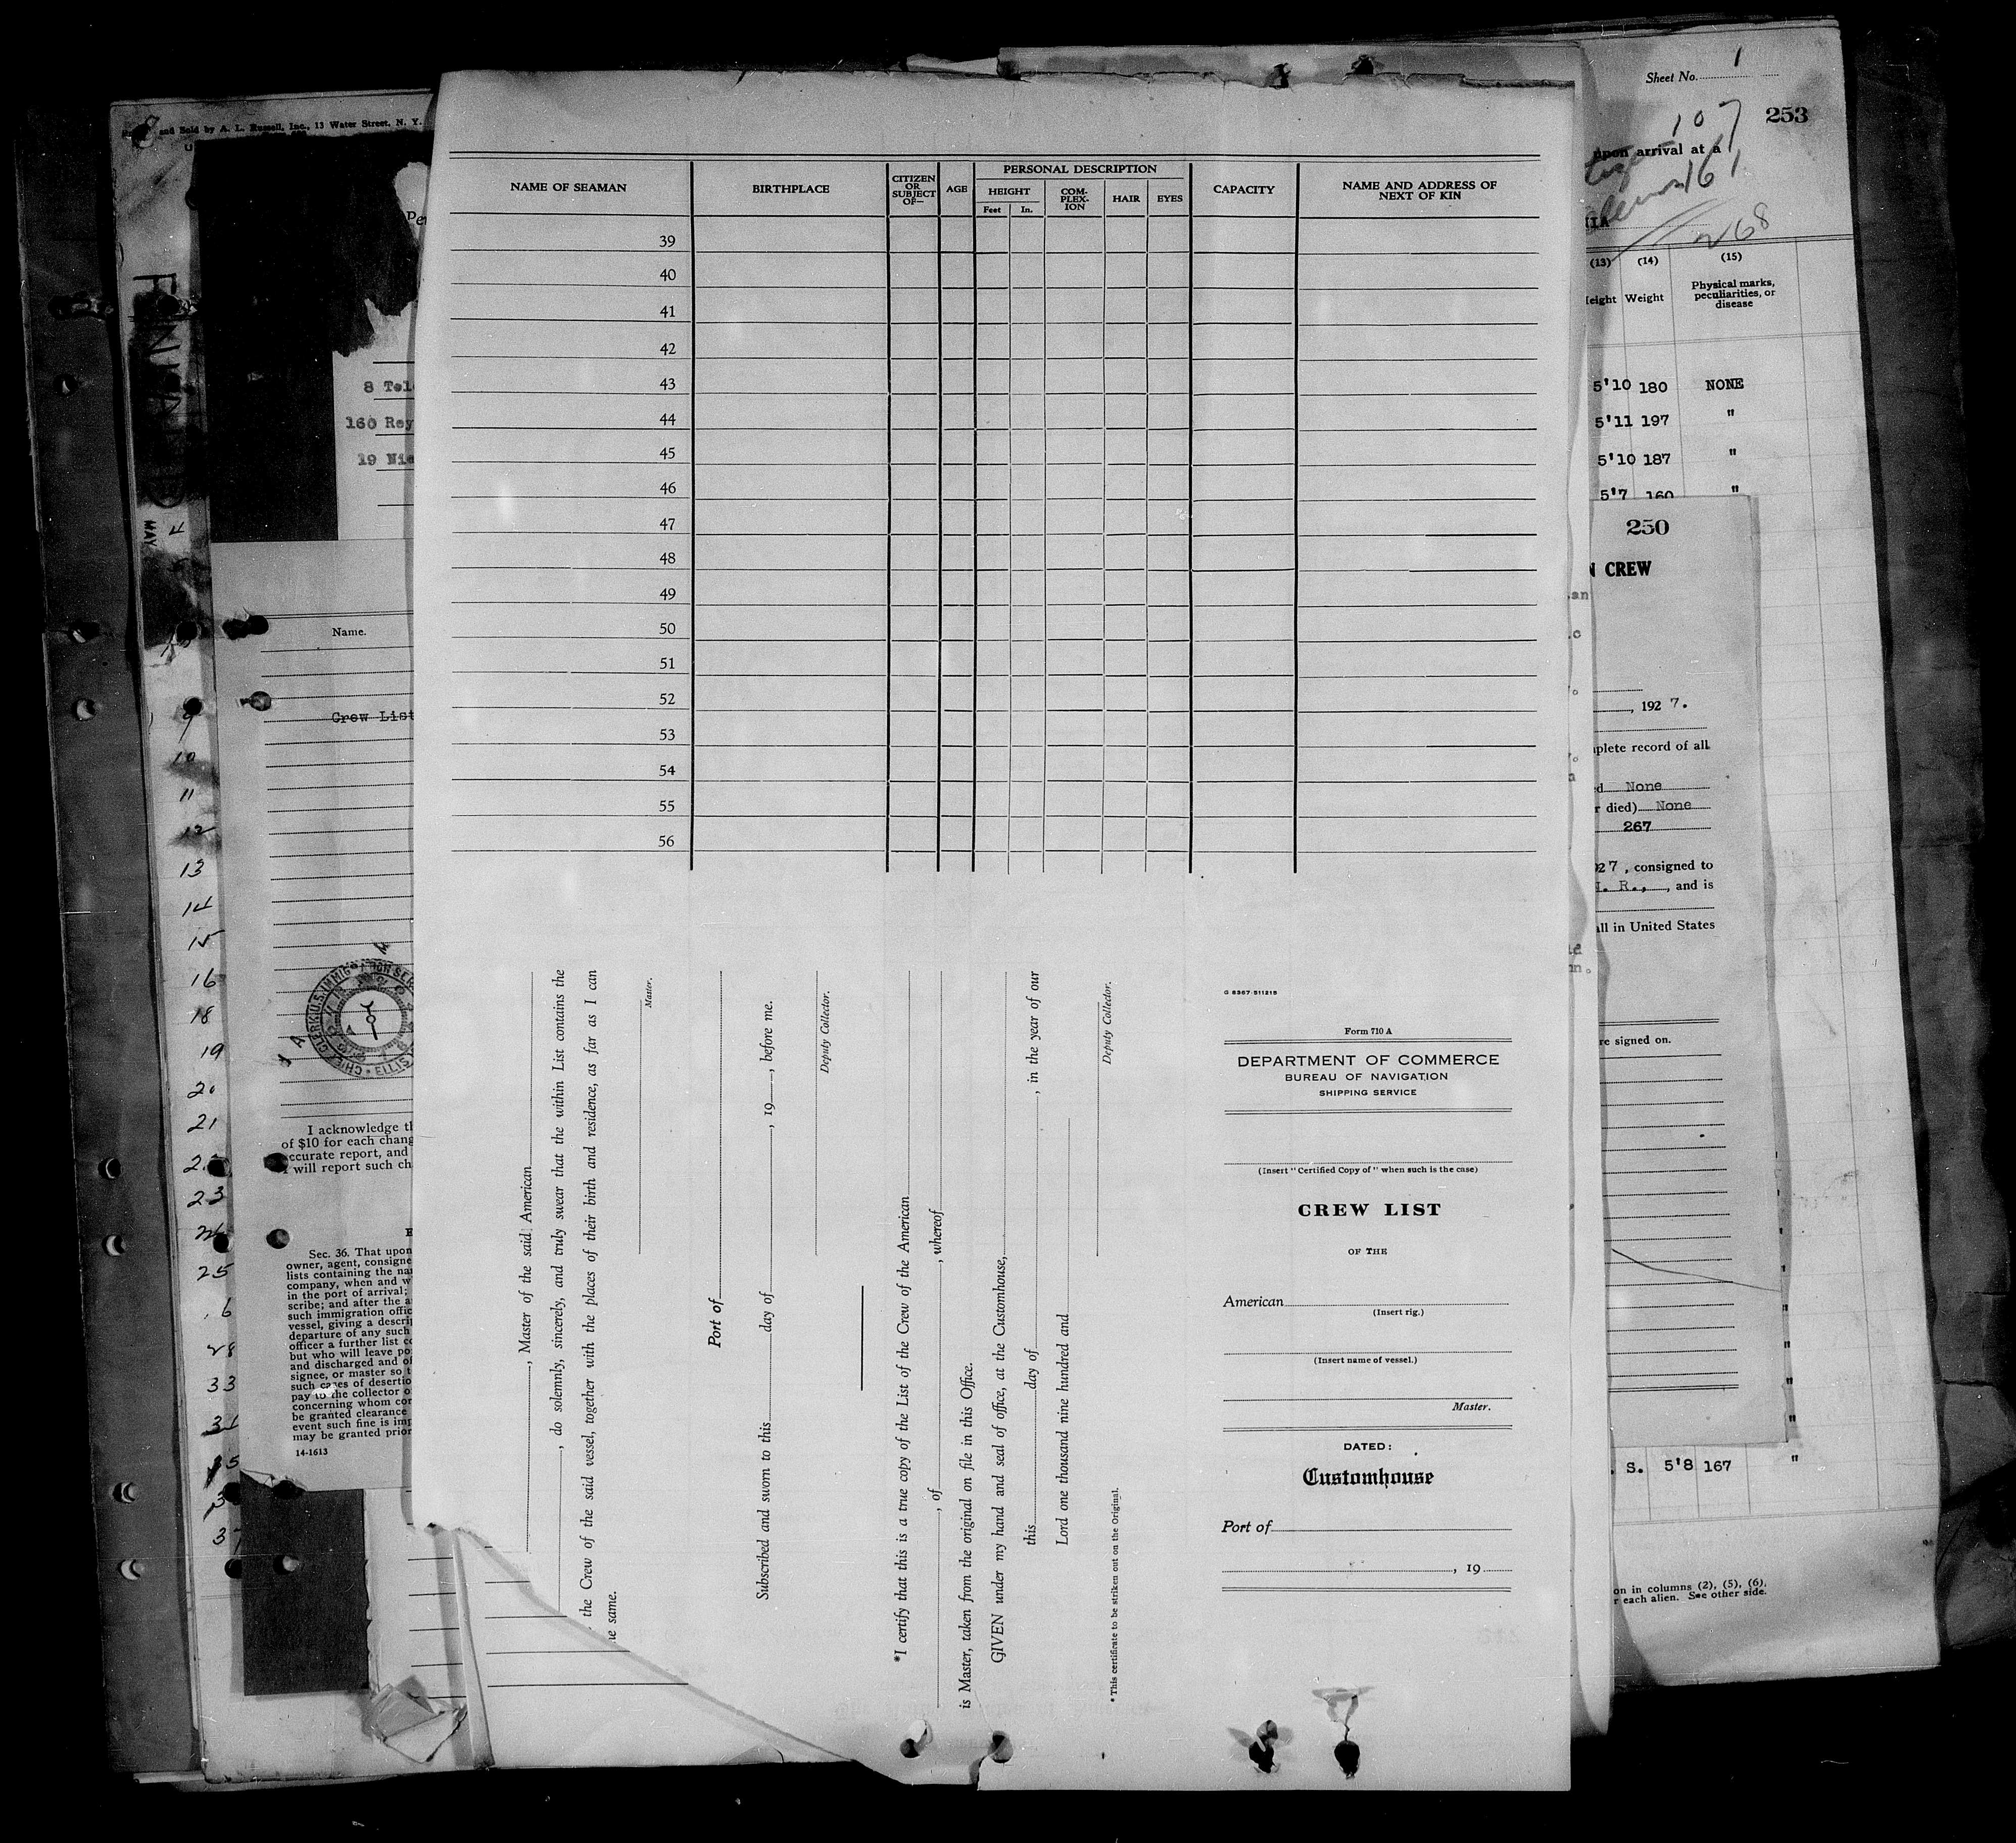 and Sold by A. L. Russell, Inc., 13 Water Street, N. Y.
8 Tel
160 Rey
19 Nie
MAY
4
9
10
11
12
13
14
15
16
18
19
20
21
23
25
33
Name.
Crew List
I acknowledge
of $10 for each chang
ccurate report, and
will report such ch
Sec. 36. That upon
owner, agent, consigne
lists containing the na
company, when and w
in the port of arrival;
scribe; and after the a
such immigration offic
vessel, giving a descri
departure of any such
officer a further list co
but who will leave po
and discharged and of
signee, or master so t
such cases of desertio
pay to the collector o
concerning whom cor
be granted clearance
event such fine is imp
may be granted prior
14-1613
NAME OF SEAMAN
BIRTHPLACE
CITIZEN
OR
SUBJECT
OF—
AGE
PERSONAL DESCRIPTION
HEIGHT
Feet In.
COM-
PLEX-
ION
HAIR
EYES
CAPACITY
NAME AND ADDRESS OF
NEXT OF KIN
39
40
41
42
43
44
45
46
47
48
49
50
51
52
53
54
55
56
, Master of the said American
, do solemnly, sincerely, and truly swear that the within List contains the
the Crew of the said vessel, together with the places of their birth and residence, as far as I can
same.
Master.
Port of
Subscribed and sworn to this day of , 19 , before me.
Deputy Collector.
*I certify that this is a true copy of the List of the Crew of the American
, of , whereof
is Master, taken from the original on file in this Office.
GIVEN under my hand and seal of office, at the Customhouse,
this day of , in the year of our
Lord one thousand nine hundred and
Deputy Collector.
*This certificate to be striken out on the Original.
G 8367-511215
Form 710 A
DEPARTMENT OF COMMERCE
BUREAU OF NAVIGATION
SHIPPING SERVICE
(Insert "Certified Copy of" when such is the case)
CREW LIST
OF THE
American
(Insert rig.)
(Insert name of vessel.)
Master.
DATED:
Customhouse
Port of
, 19
Sheet No. 1
107
253
upon arrival at a
161
268
(13) (14) (15)
eight Weight Physical marks,
peculiarities, or
disease
5'10 180 NONE
5'11 197 "
5'10 187 "
5'7 160 "
250
N CREW
, 192 7.
plete record of all
None
r died) None
267
27, consigned to
R., , and is
all in United States
re signed on.
S. 5'8 167 "
on in columns (2), (5), (6),
r each alien. See other side.